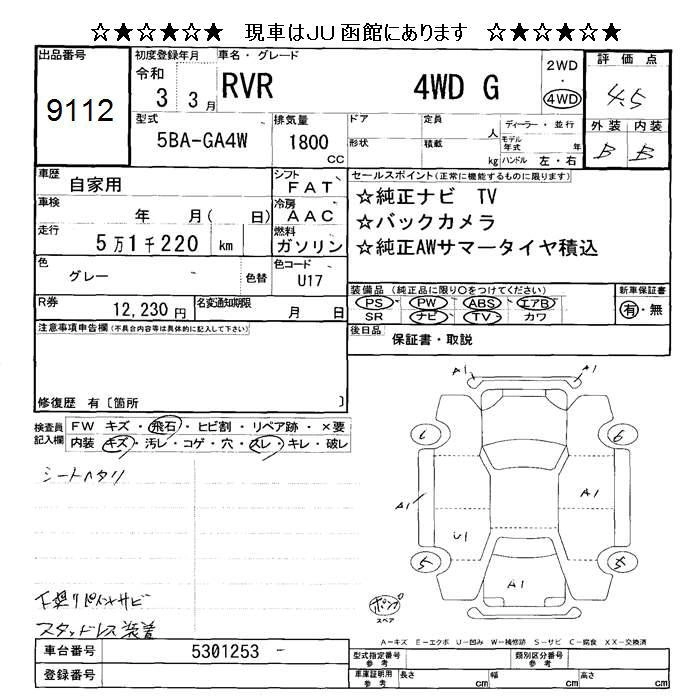 ☆★☆★☆★　現車はＪＵ函館にあります　☆★☆★☆★
出品番号
9112
初度登録年月
令和
3 3月
車名・グレード
RVR 4WD G
2WD
・
4WD
評価点
4.5
外装 内装
B B
型式
5BA-GA4W
排気量
1800
CC
ドア
形状
定員
人
積載
kg
ディーラー・並行
モデル年式 年
ハンドル 左・右
車歴
自家用
シフト
FAT
車検
年 月( 日)
冷房
AAC
走行
5万1千220 km
燃料
ガソリン
色
グレー
色替
色コード
U17
R券
12,230円
名変通知期限
月 日
セールスポイント(正常に機能するものに限ります)
☆純正ナビ　TV
☆バックカメラ
☆純正AWサマータイヤ積込
装備品 (純正品に限り○をつけてください)
PS・PW・ABS・エアB
SR ナビ・TV・カワ
新車保証書
有・無
後日品
保証書・取説
注意事項申告欄(不具合内容等は具体的に記入して下さい)
修復歴 有〔箇所 〕
検査員
記入欄
FW キズ・飛石・ヒビ割・リペア跡・×要
内装 キズ・汚レ・コゲ・穴・スレ・キレ・破レ
シートヘタリ
下廻りペイントサビ
スタッドレス装着
A1
A1
6
6
A1
A1
U1
5
5
A1
ポンプ
スペア
A－キズ　E－エクボ　U－凹み　W－補修跡　S－サビ　C－腐食　XX－交換済
車台番号
5301253
登録番号
型式指定番号
参考
類別区分番号
参考
車庫証明用
参考
長さ
cm
幅
cm
高さ
cm